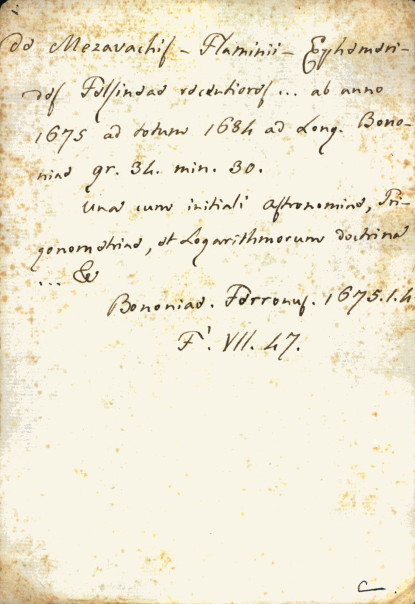 de Mezavachis - Flaminii - Ephemeri-
des Felsineae recentiores ... ab anno
1675 ad totum 1684 ad Long. Bono-
niae gr. 34. min. 30.
Una cum initiali Astronomiae, Tri-
gonometriae, et Logarithmorum doctrina
... &
Bononiae. Ferronus. 1675. 1. 4
F'. VII. 47.
C